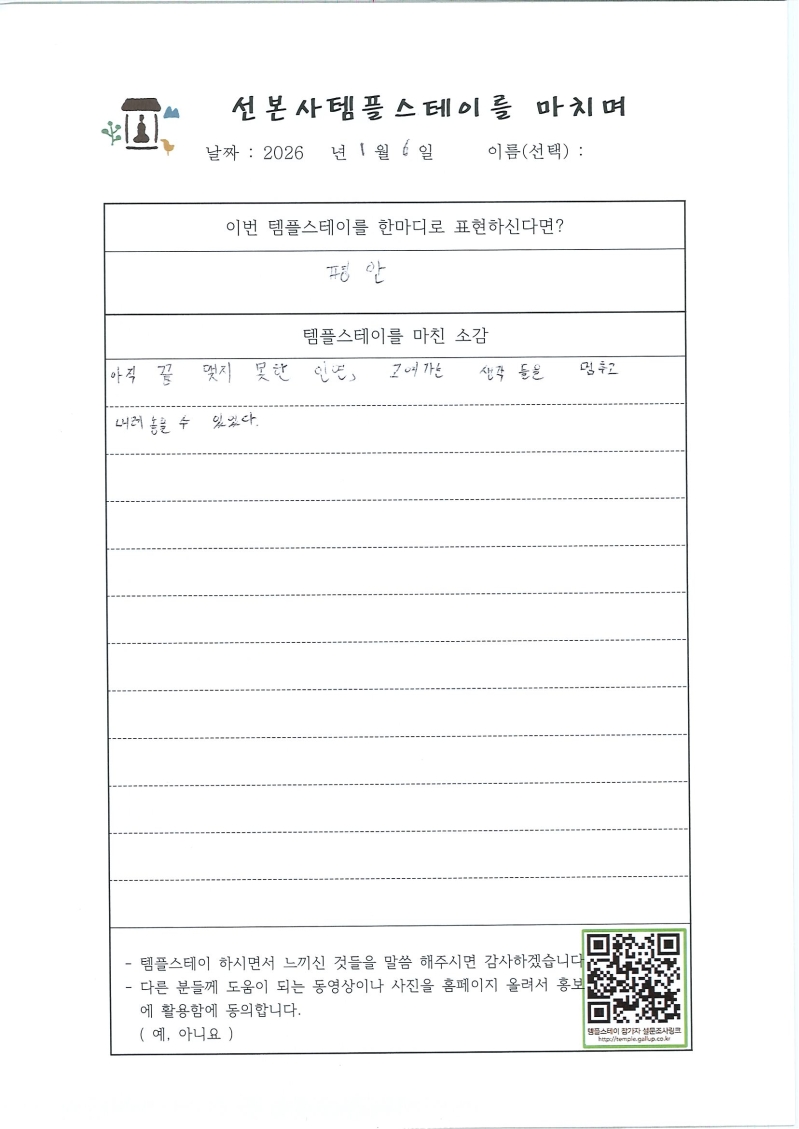 선본사템플스테이를 마치며
날짜 : 2026 년 1 월 6 일 이름(선택) :
이번 템플스테이를 한마디로 표현하신다면?
평안
템플스테이를 마친 소감
아직 끝 맺지 못한 인연, 생각 들을 멈추고
내려 놓을 수 있었다.
- 템플스테이 하시면서 느끼신 것들을 말씀 해주시면 감사하겠습니다
- 다른 분들께 도움이 되는 동영상이나 사진을 홈페이지 올려서 홍보
에 활용함에 동의합니다.
( 예, 아니요 )
템플스테이 참가자 설문조사링크
http://temple.gallup.co.kr